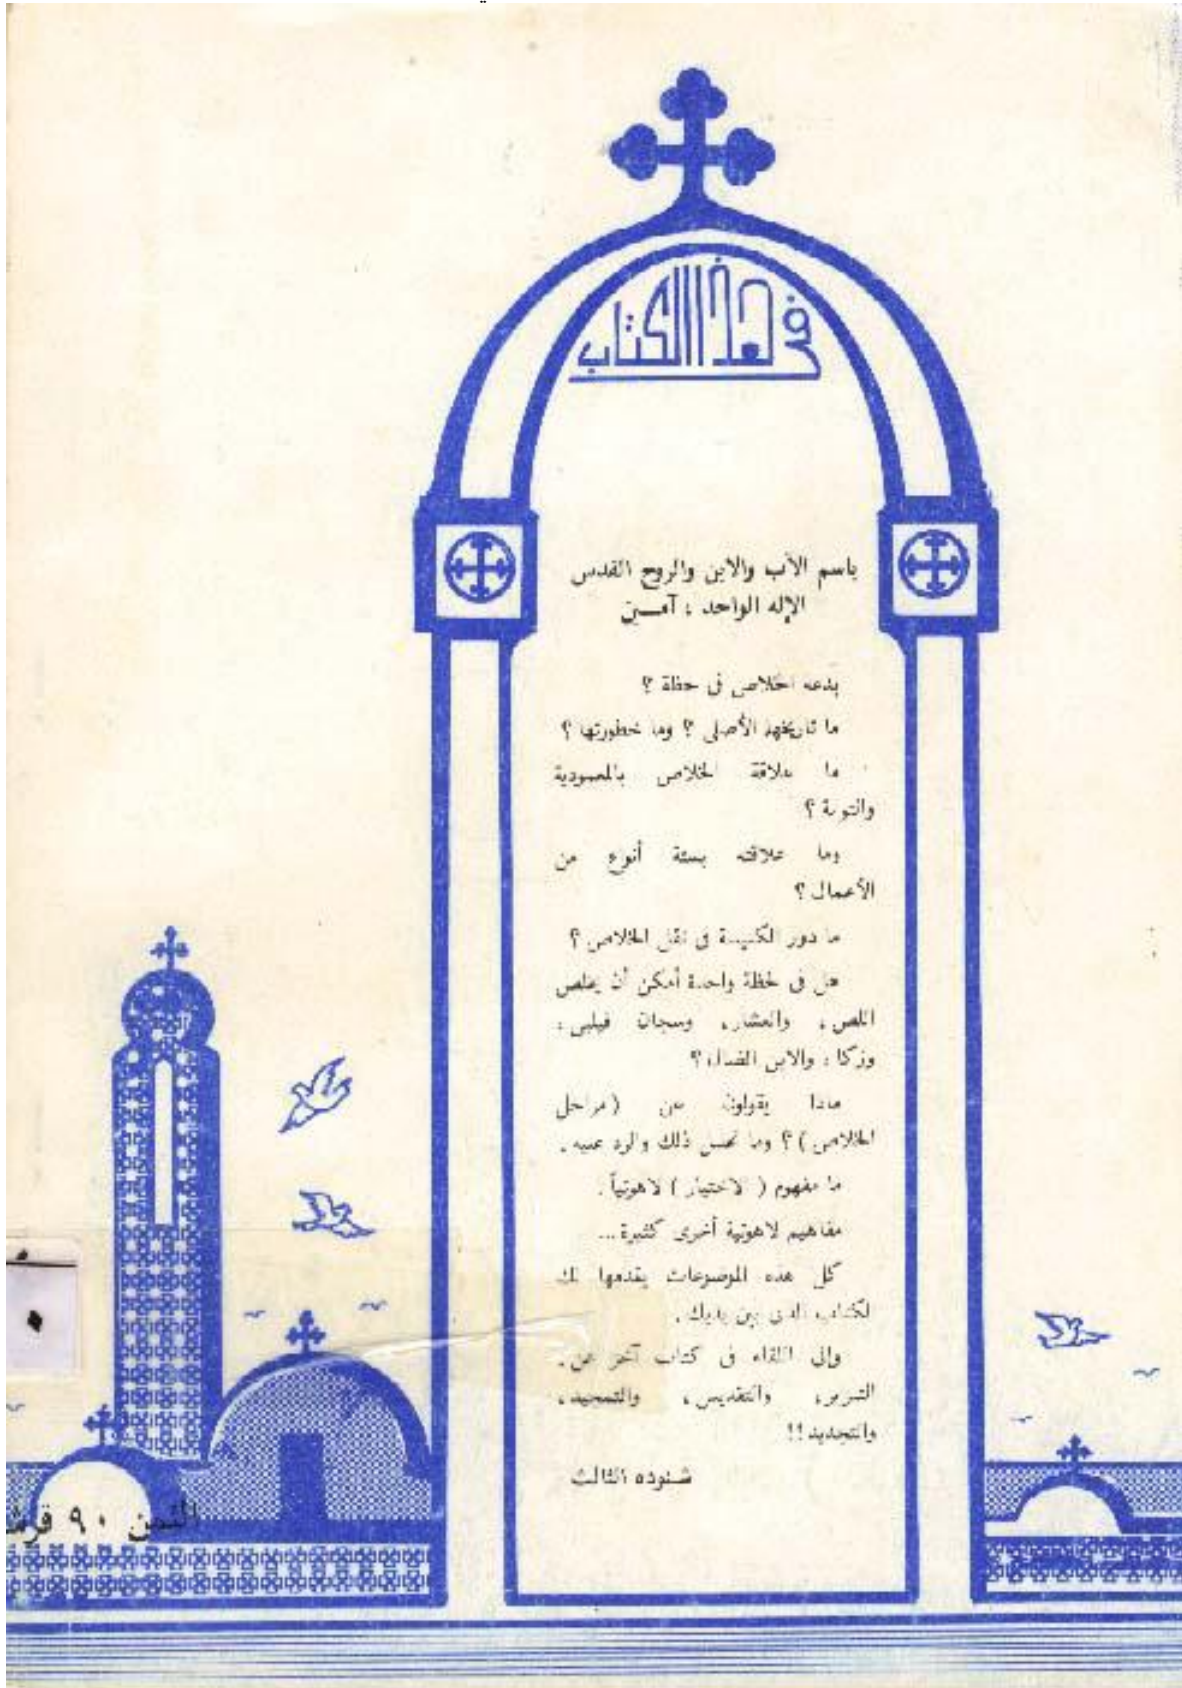 في هذا الكتاب
باسم الآب والابن والروح القدس
الإله الواحد ، آمـــين
بدعه الخلاص فى لحظة ؟
ما تاريخها الأصلى ؟ وما خطورتها ؟
ما علاقة الخلاص بالمعمودية
والتوبة ؟
وما علاقته بستة أنوع من
الأعمال ؟
ما دور الكنيسة فى نقل الخلاص ؟
هل فى لحظة واحدة أمكن أن يخلص
اللص ، والعشار ، وسجان فيلبى ،
وزكا ، والابن الضال ؟
ماذا يقولون عن (مراحل
الخلاص) ؟ وما ذلك والرد عليه .
ما مفهوم ( الاختيار ) لاهوتياً .
مفاهيم لاهوتية أخرى كثيرة ...
كل هذه الموضوعات يقدمها لك
الكتاب الذى بين يديك .
وإلى اللقاء فى كتاب آخر عن .
التبرير ، والتقديس ، والتمجيد ،
والتجديد !!
شنوده الثالث
الثمن ٩٠ قرش